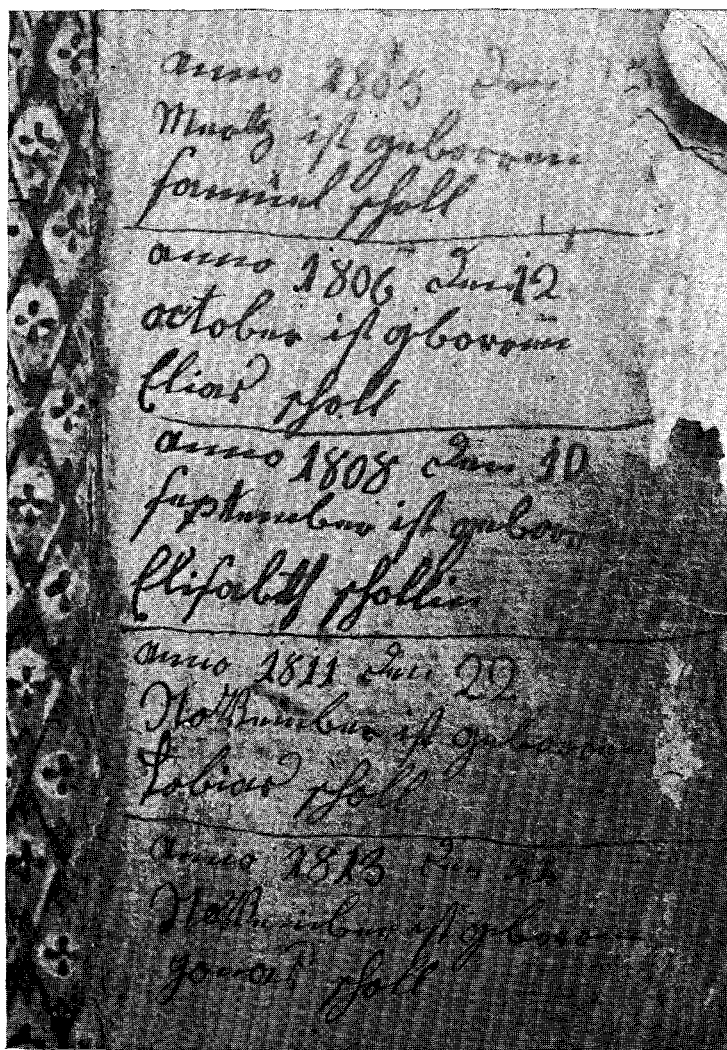 anno 1805 den
Mertz ist geborren
samuel scholl
anno 1806 den 12
october ist gborren
Elias scholl
anno 1808 den 10
september ist gebor
Elisabeth schollin
anno 1811 den 22
November ist geboren
tobias scholl
anno 1813 den
November ist geboren
Jonas scholl